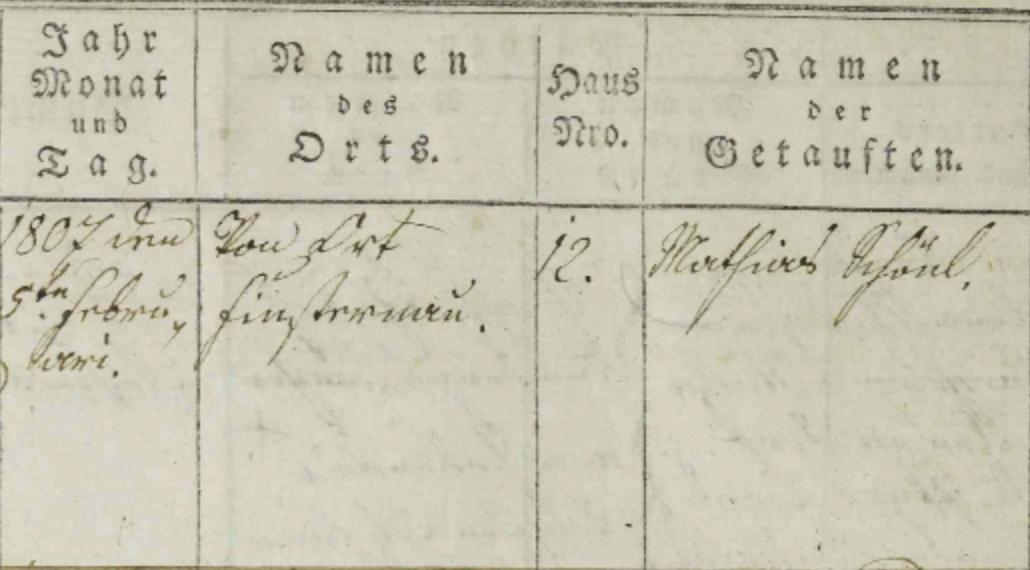 Jahr
Monat
und
Tag.
Namen
des
Orts.
Haus
Nro.
Namen
der
Getauften.
1807 den
5ten Febru,
ari.
Von Ort
Finsternau.
12.
Mathias Schönl.